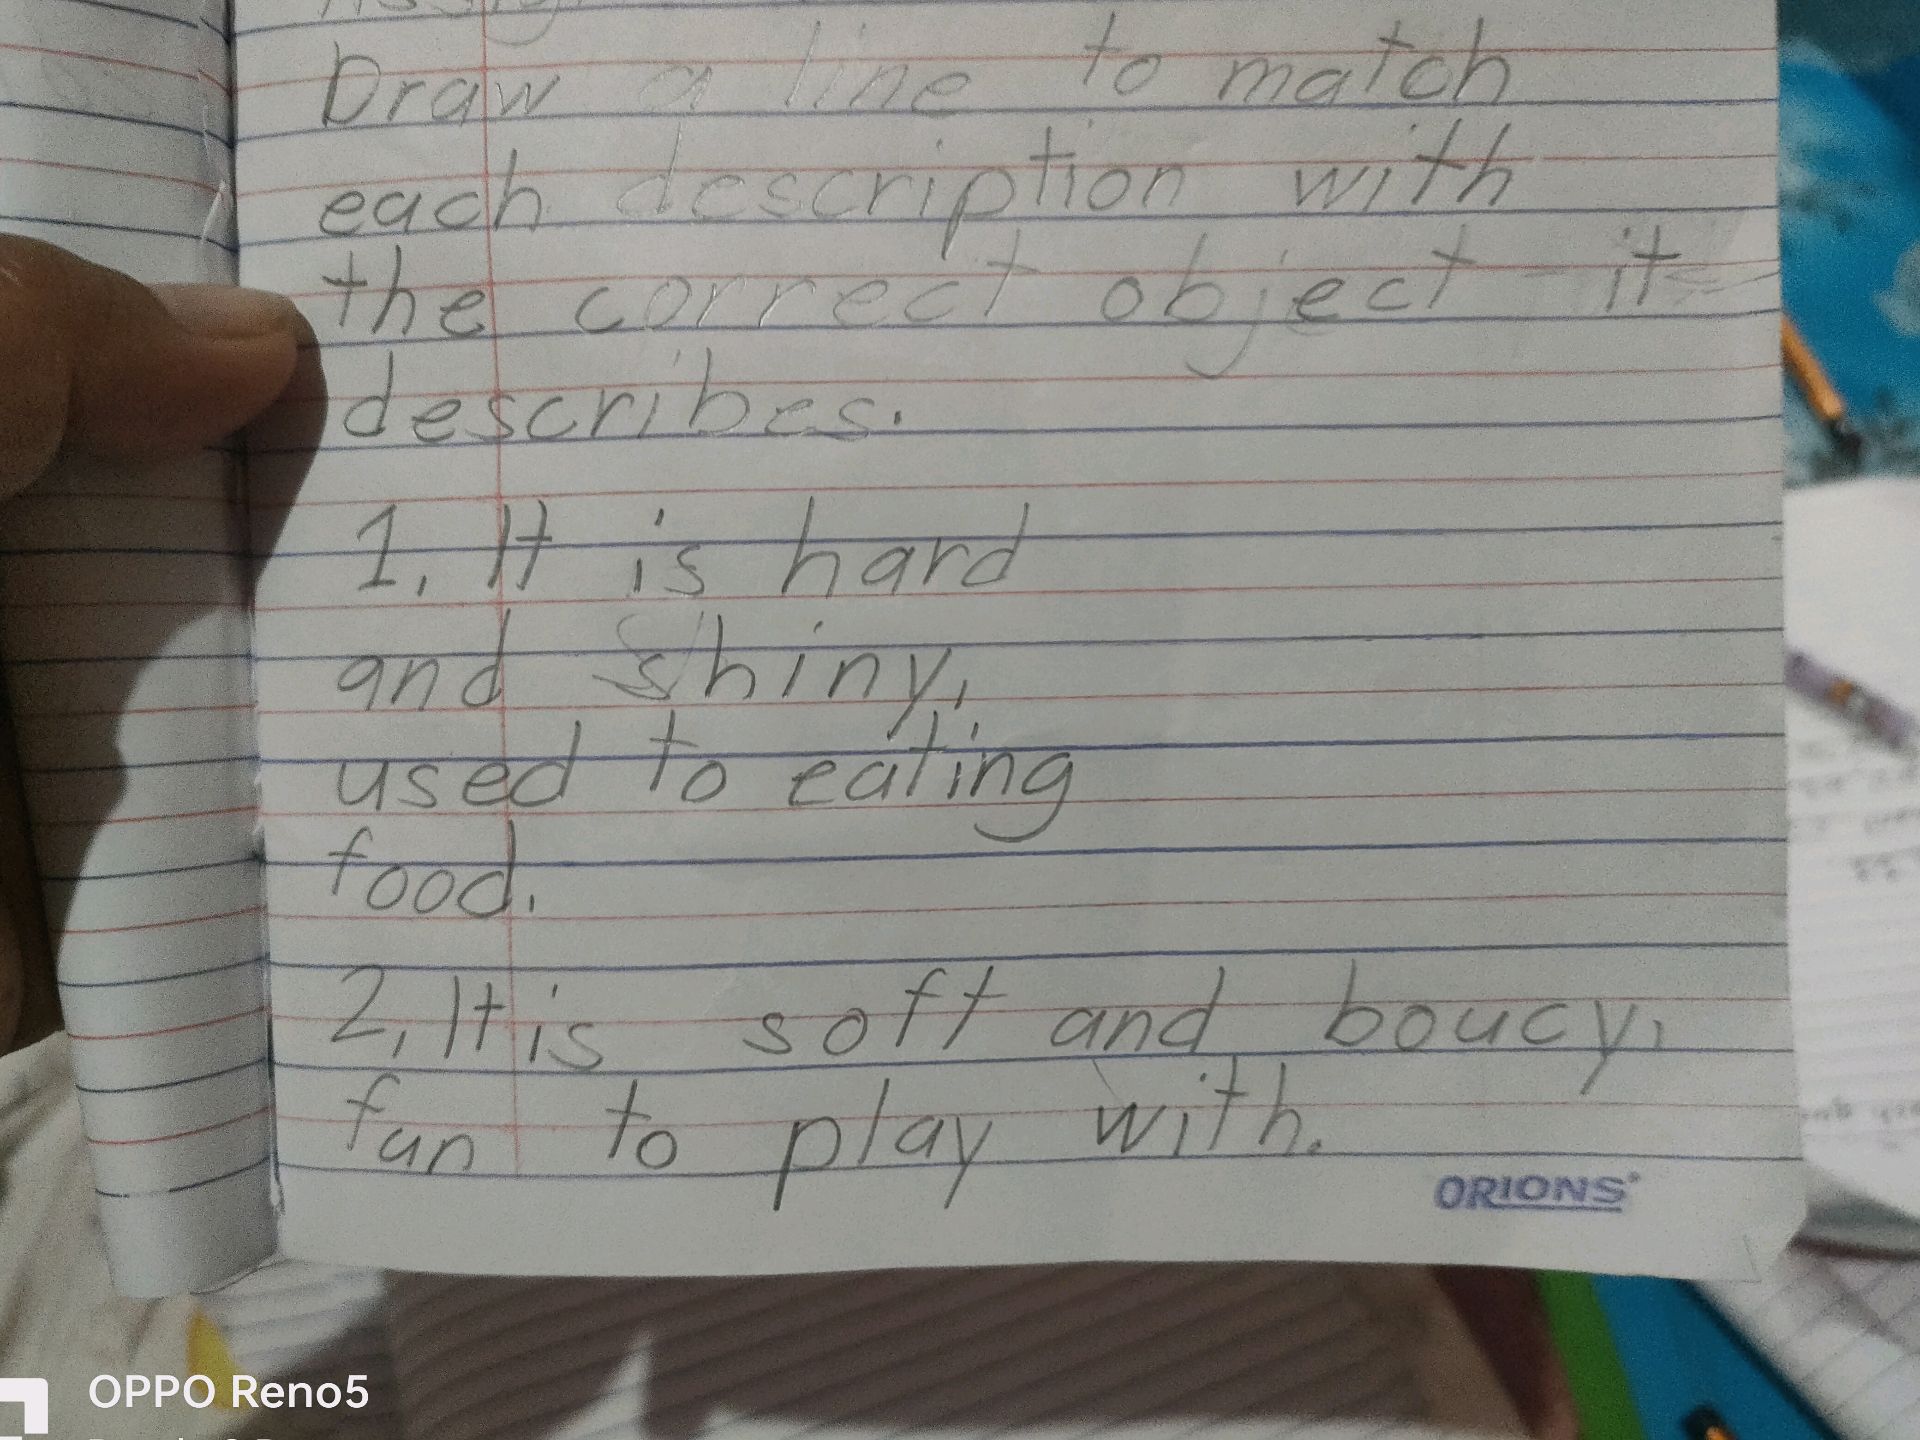 Draw a line to match
each description with
the correct object it
describes.
1. It is hard
and shiny,
used to eating
food.
2. It is soft and boucy,
fun to play with.
ORIONS
OPPO Reno5